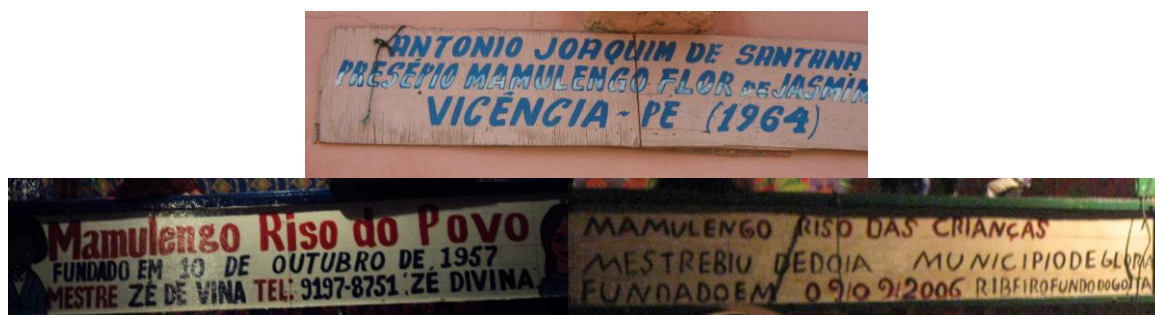 ANTONIO JOAQUIM DE SANTANA
PRESÉPIO MAMULENGO FLOR DE JASMIM
VICÊNCIA - PE (1964)
Mamulengo Riso do Povo
FUNDADO EM 10 DE OUTUBRO DE 1957
MESTRE ZÉ DE VINA TEL: 9197-8751 ZÉ DIVINA
MAMULENGO RISO DAS CRIANÇAS
MESTRE BIU DEDOIA MUNICIPIO DE GLORIA
FUNDADO EM 09/09/2006 RIBEIRO FUNDO DO GOITA